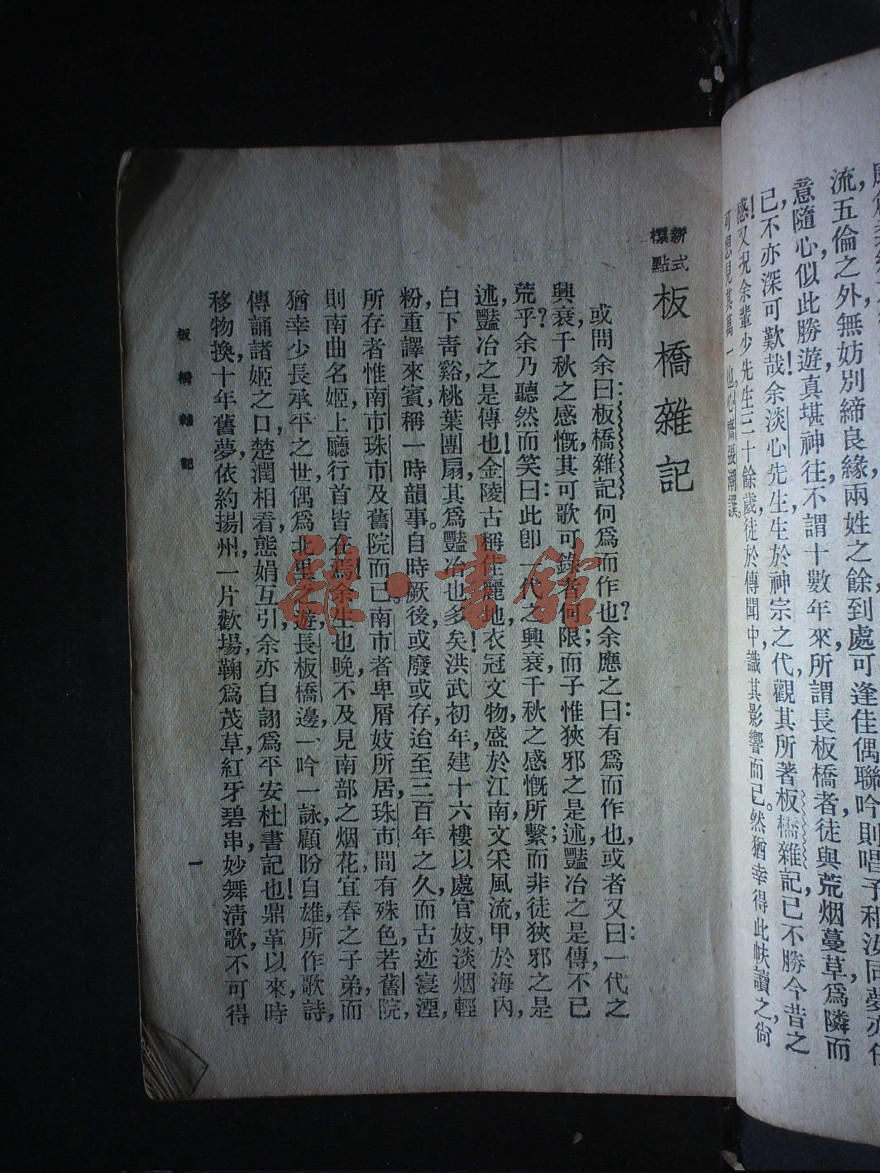 流,五倫之外,無妨別締良緣,兩姓之餘,到處可逢佳偶,聯吟則唱予和汝,同夢亦
意隨心,似此勝遊,眞堪神往,不謂十數年來,所謂長板橋者,徒與荒烟蔓草爲隣而
已,不亦深可歎哉!余淡心先生生於神宗之代,觀其所著板橋雜記,已不勝今昔之
感!又況余輩少先生三十餘歲,徒於傳聞中識其影響而已。然猶幸得此帙讀之,尙
可想見其萬一也。心齋張潮譔。
新式
標點
板橋雜記
或問余曰:板橋雜記何爲而作也?余應之曰:有爲而作也,或者又曰:一代之
興衰,千秋之感慨,其可歌可錄者何限;而子惟狹邪之是述,豔冶之是傳,不已
荒乎?余乃聽然而笑曰:此卽一代之興衰,千秋之感慨所繫;而非徒狹邪之是
述,豔冶之是傳也!金陵古稱佳麗地,衣冠文物,盛於江南,文采風流,甲於海內,
白下靑谿,桃葉團扇,其爲豔冶也多矣!洪武初年,建十六樓以處官妓,淡烟輕
粉,重譯來賓,稱一時韻事。自時厥後,或廢或存,迨至三百年之久,而古迹寖湮,
所存者惟南市珠市及舊院而已。南市者,卑屑妓所居,珠市間有殊色,若舊院,
則南曲名姬上廳行首皆在焉,余生也晚,不及見南部之烟花,宜春之子弟,而
猶幸少長承平之世,偶爲北里之遊,長板橋邊,一吟一詠,顧盼自雄,所作歌詩,
傳誦諸姬之口,楚潤相看,態娟互引,余亦自詡爲平安杜書記也!鼎革以來,時
移物換,十年舊夢,依約揚州,一片歡場,鞠爲茂草,紅牙碧串,妙舞淸歌,不可得
板橋雜記
一
雜·書館